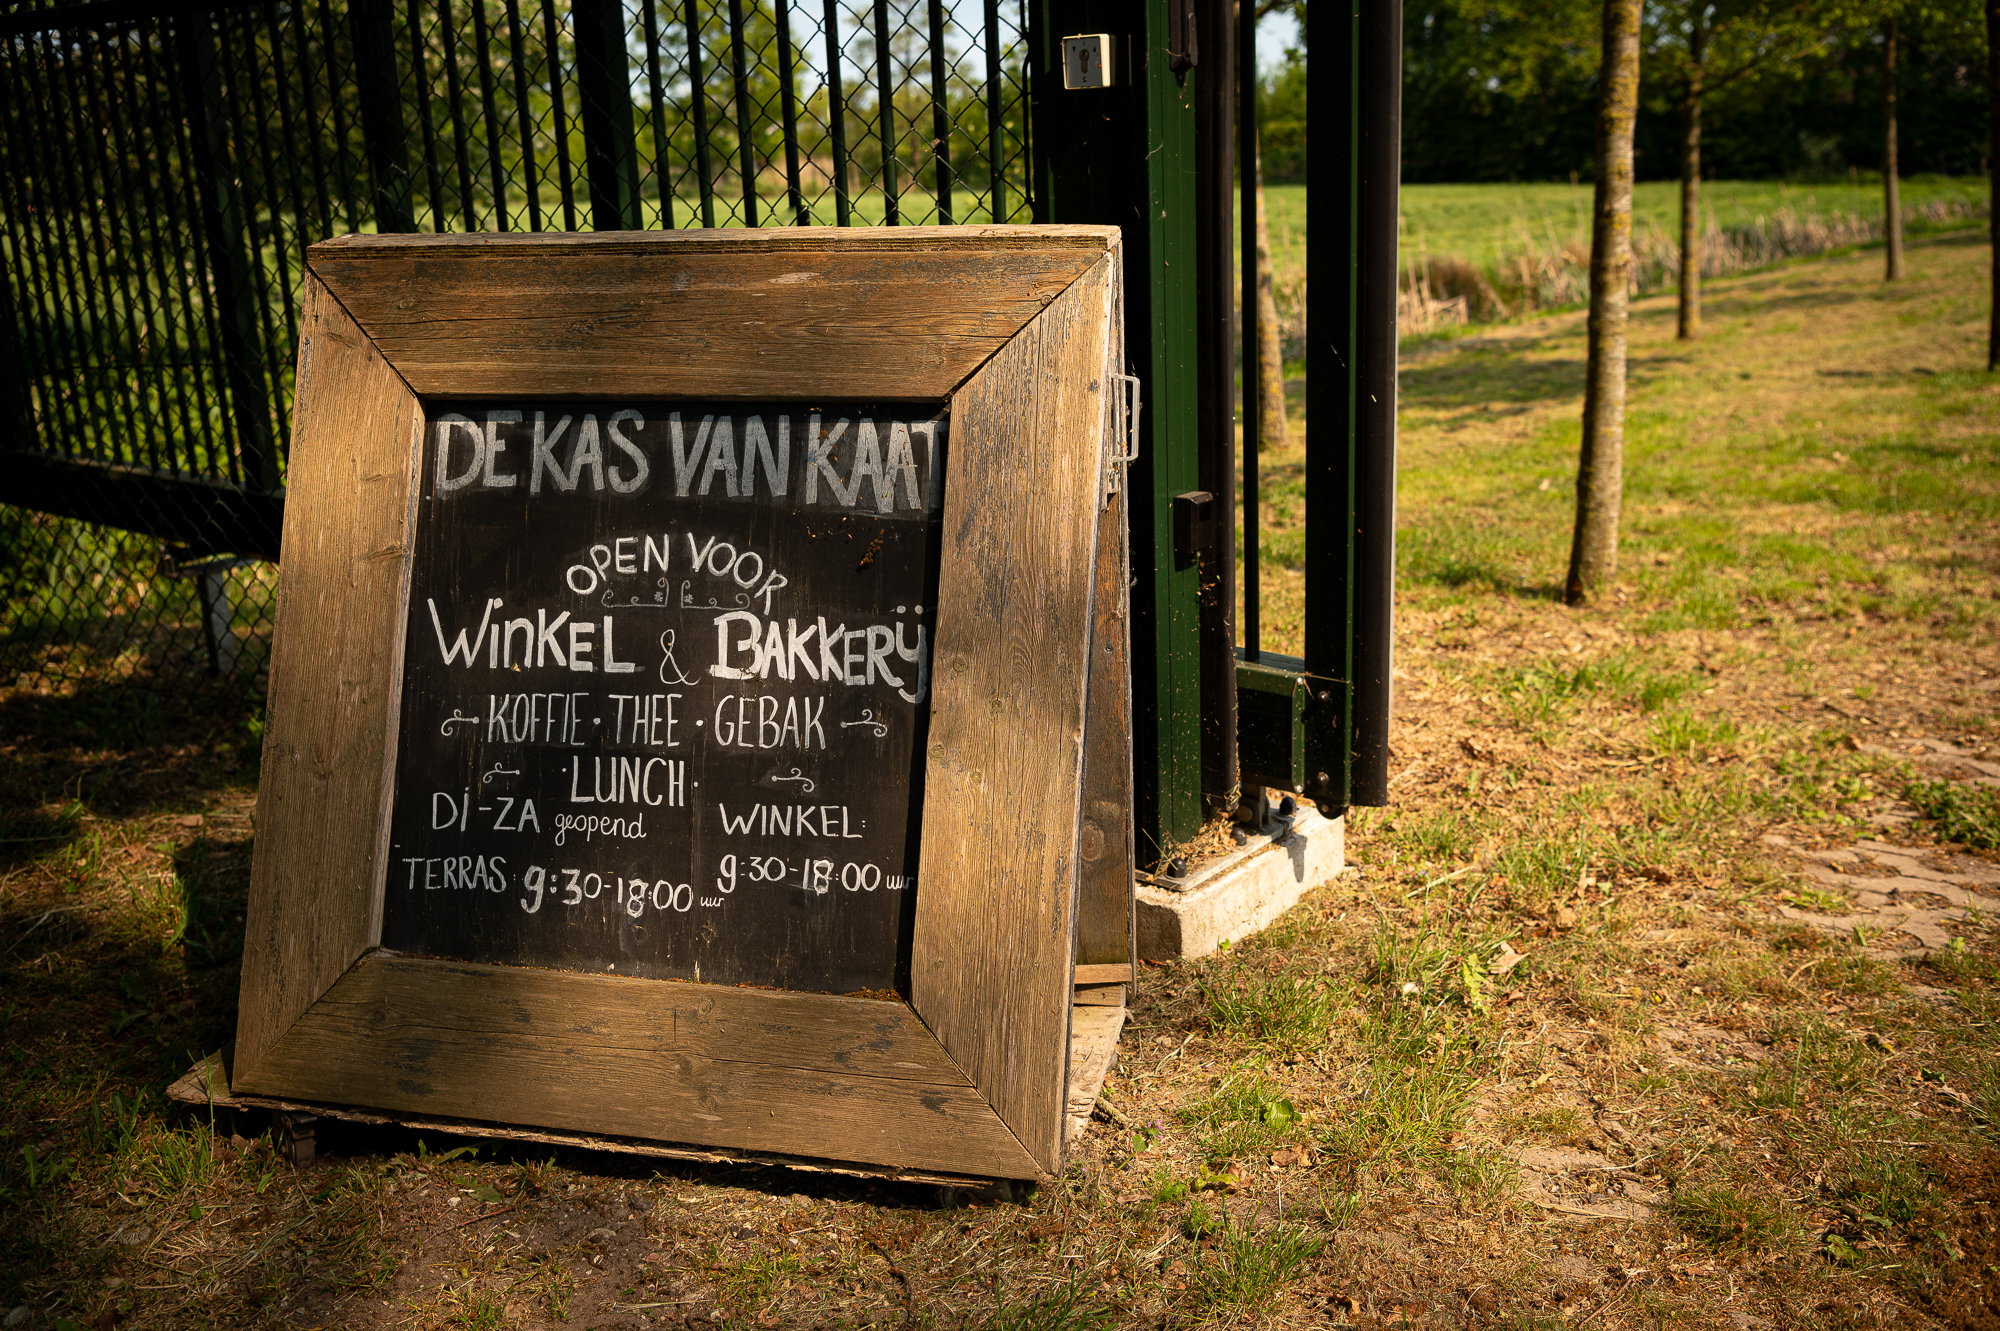 DE KAS VAN KAAT
OPEN VOOR
WINKEL & BAKKERIJ
KOFFIE · THEE · GEBAK
· LUNCH ·
DI - ZA geopend
TERRAS 9:30 - 18:00 uur
WINKEL:
9:30 - 18:00 uur